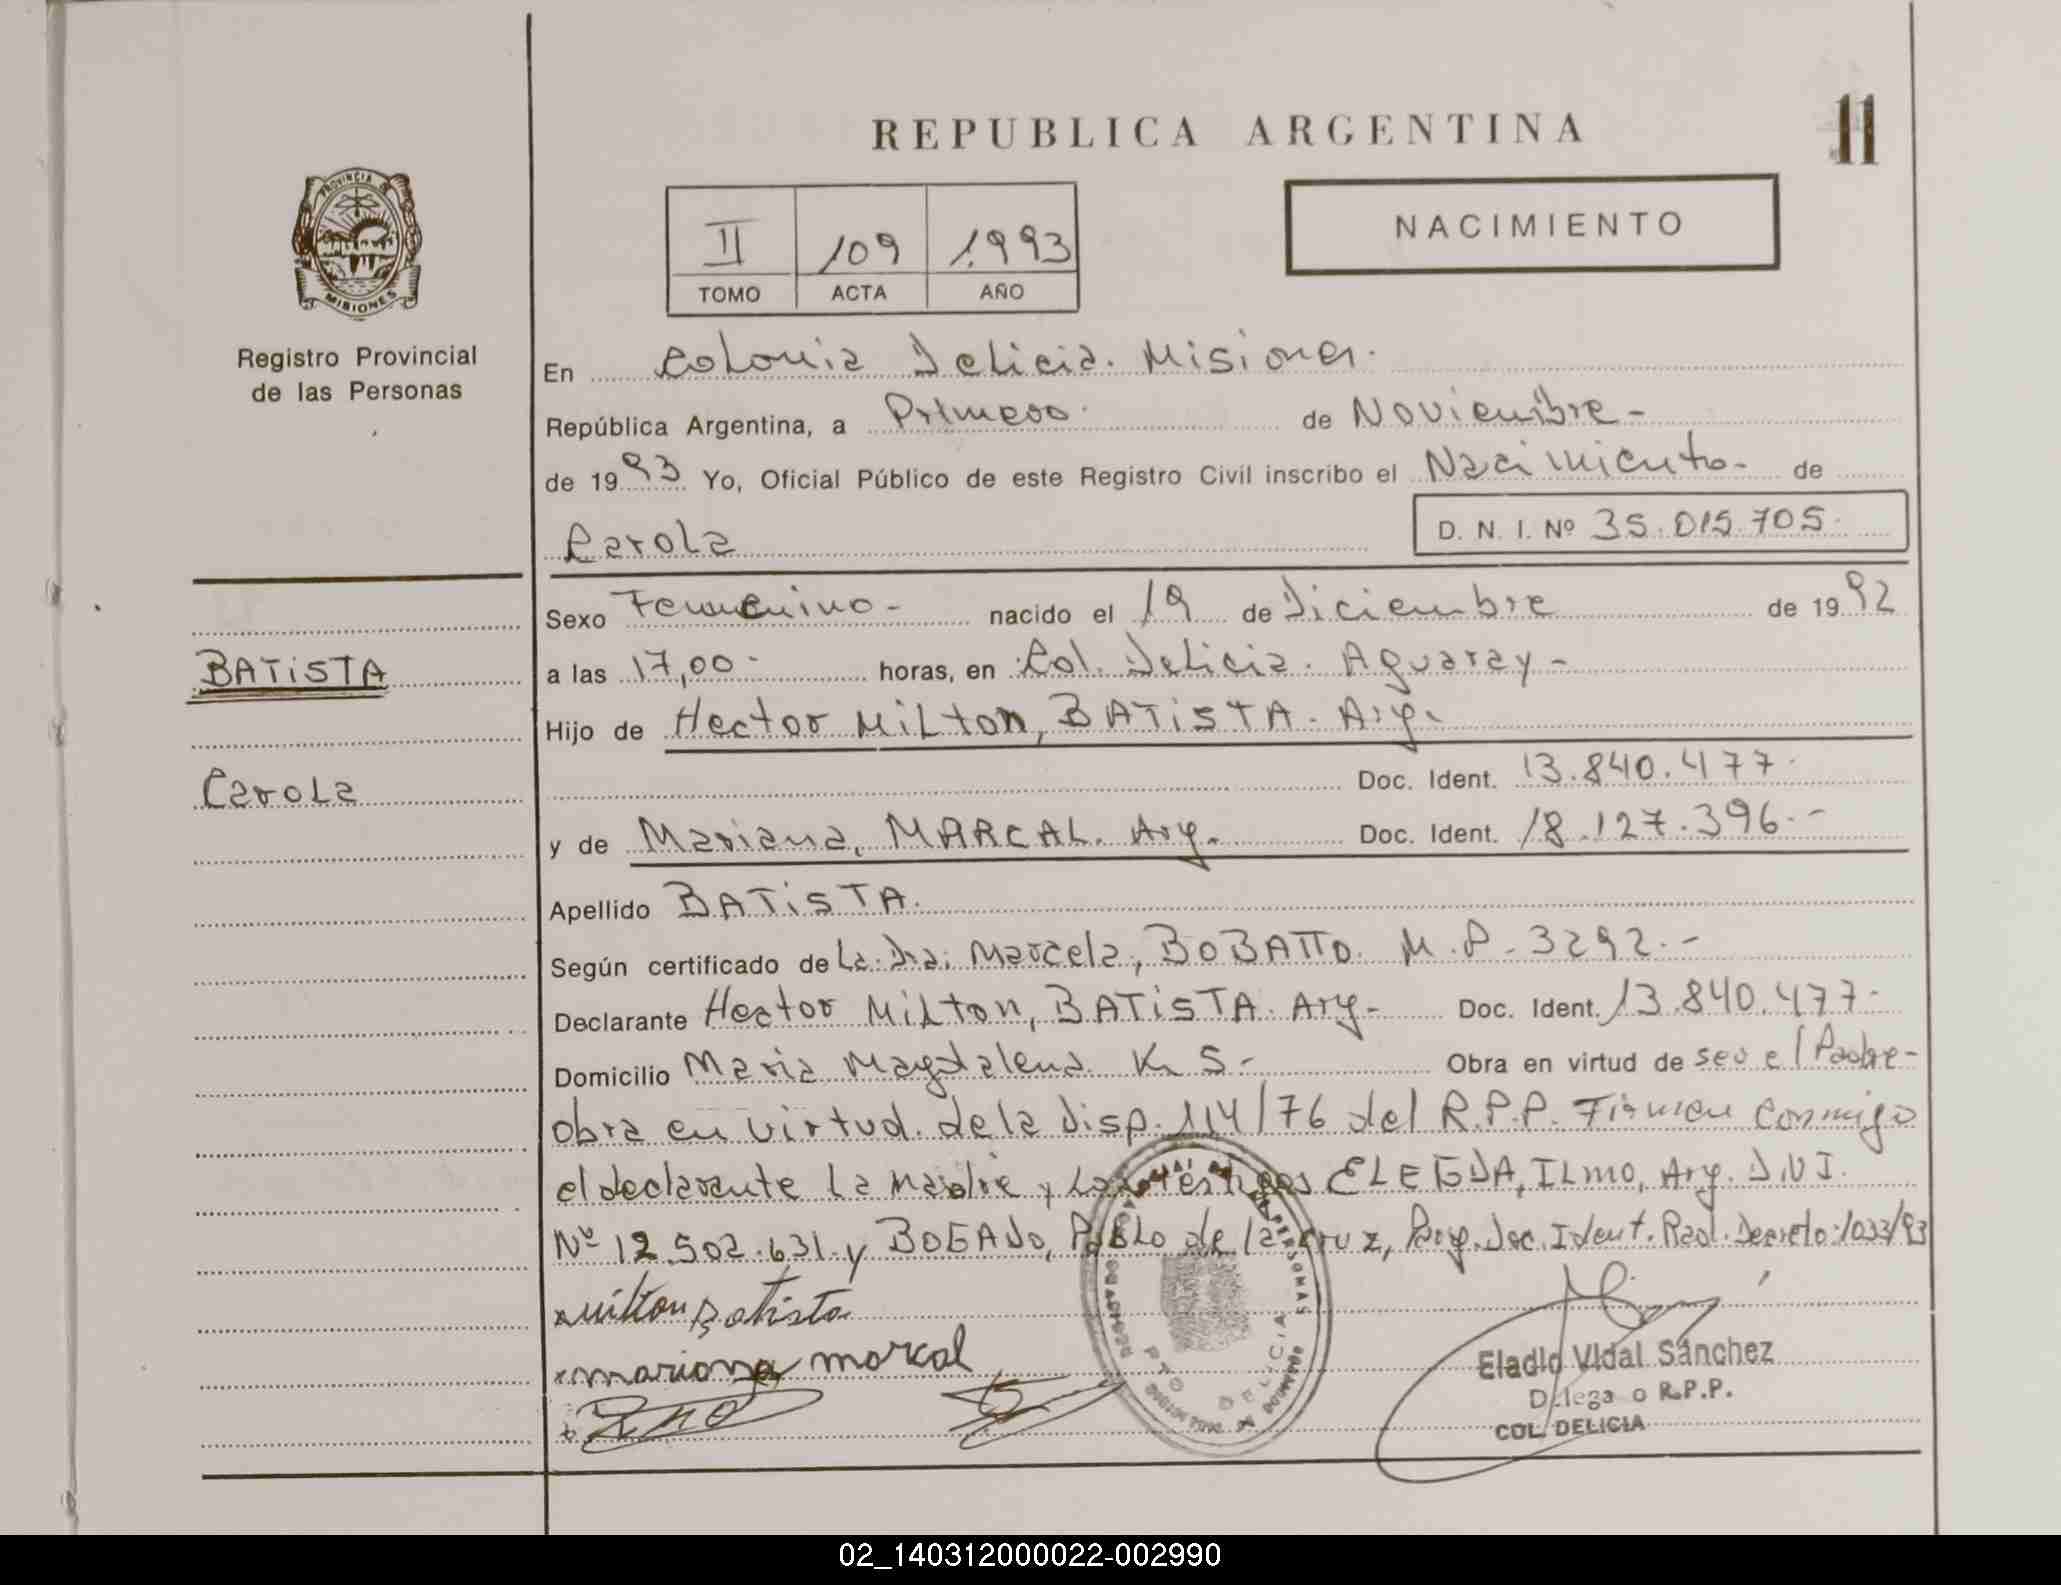 11
REPUBLICA ARGENTINA
PROVINCIA DE
MISIONES
Registro Provincial
de las Personas
II 109 1.993
TOMO ACTA AÑO
NACIMIENTO
En Colonia Delicia. Misiones.
República Argentina, a Primero. de Noviembre -
de 1993 Yo, Oficial Público de este Registro Civil inscribo el Nacimiento - de
Carola D. N. I. Nº 35.015.705.
Sexo Femenino - nacido el 19 de Diciembre de 1992
BATiSTA
a las 17,00 - horas, en Col. Delicia. Aguaray -
Hijo de Hector MiLton, BATiSTA. Arg.
Carola
Doc. Ident. 13.840.477.
y de Mariana, MARCAL. Arg. Doc. Ident. 18.127.396.-
Apellido BATiSTA.
Según certificado de La. Dra. Marcela, BOBATTO. M.P. 3292.-
Declarante Hector MiLton, BATiSTA. Arg - Doc. Ident. 13.840.477.
Domicilio Maria Magdalena K S.- Obra en virtud de ser el Padre-
obra en virtud. de la Disp. 114/76 del R.P.P. Firman Conmigo
el declarante La Madre y Los testigos ELEGDA, ILMO, Arg. D.N.I.
Nº 12.502.631. y BOGADO, PABLO de la Cruz, Parg. Doc. Ident. Rad. Decreto: 1033/93
Milton Batista
mariana markal
PERSONAS
PTO DELICIA
Eladio Vidal Sánchez
Delegado R.P.P.
COL. DELICIA
02_140312000022-002990